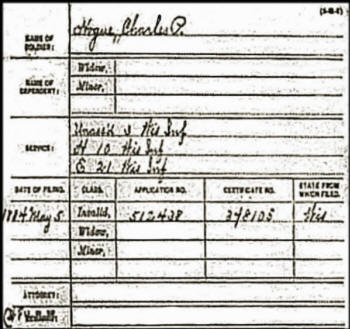 (3-48-2)
NAME OF SOLDIER: Hogue, Charles P.
NAME OF DEPENDENT: Widow,
Minor,
SERVICE: Unass'd 3 Wis Inf
A 10 Wis Inf
E 21 Wis Inf
DATE OF FILING. CLASS. APPLICATION NO. CERTIFICATE NO. STATE FROM WHICH FILED.
1884 May 5 Invalid, 512438 348105 Wis
Widow,
Minor,
ATTORNEY: